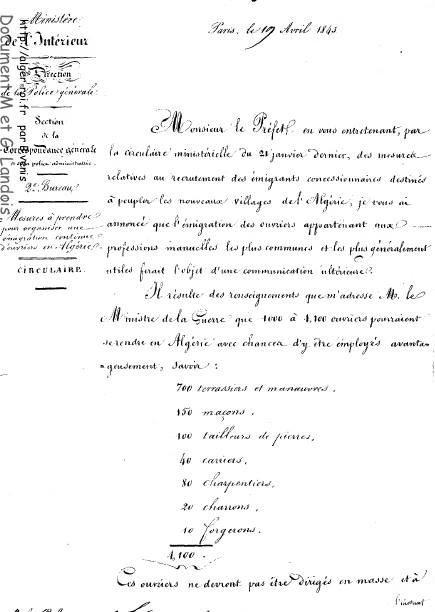 Document M et G Landois
http://alger-roi.fr par B.Venis
Ministère
de l'Intérieur
Direction
de la Police générale.
Section
de la
Correspondance générale
de police administrative.
2e. Bureau.
Mesures à prendre
pour organiser une
émigration continue
d'ouvriers en Algérie.
CIRCULAIRE.
Paris, le 19 Avril 1843
Monsieur le Préfet, en vous entretenant, par
la circulaire ministérielle du 21 janvier dernier, des mesures
relatives au recrutement des émigrants concessionnaires destinés
à peupler les nouveaux villages de l'Algérie, je vous ai
annoncé que l'émigration des ouvriers appartenant aux
professions manuelles les plus communes et les plus généralement
utiles ferait l'objet d'une communication ultérieure.
Il résulte des renseignements que m'adresse M. le
Ministre de la Guerre que 1000 à 1,100 ouvriers pourraient
se rendre en Algérie avec chances d'y être employés avanta-
=geusement, savoir :
700 terrassiers et manœuvres.
150 maçons.
100 tailleurs de pierres.
40 carriers.
80 charpentiers.
20 charrons.
10 forgerons.
1,100.
Ces ouvriers ne devront pas être dirigés en masse et à
l'instant